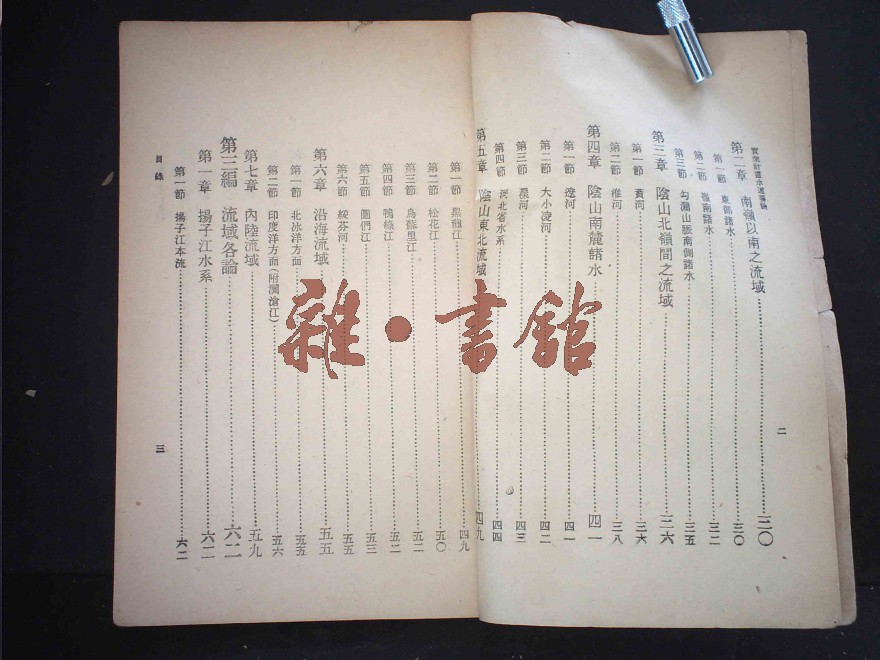 實業計畫水道要論
第二章　南嶺以南之流域……三〇
第一節　東部諸水……三〇
第二節　嶺南諸水……三二
第三節　勾漏山脈南側諸水……三五
第三章　陰山北嶺間之流域……三六
第一節　黃河……三六
第二節　淮河……三八
第四章　陰山南麓諸水……四一
第一節　遼河……四一
第二節　大小凌河……四二
第三節　灤河……四三
第四節　河北省水系……四四
第五章　陰山東北流域……四九
二
第一節　黑龍江……四九
第二節　松花江……五〇
第三節　烏蘇里江……五二
第四節　鴨綠江……五二
第五節　圖們江……五三
第六節　綏芬河……五五
第六章　沿海流域……五五
第一節　北冰洋方面……五五
第二節　印度洋方面(附瀾滄江)……五六
第七章　內陸流域……五九
第三編　流域各論……六二
第一章　揚子江水系……六二
第一節　揚子江本流……六二
目錄
三
雜·書館